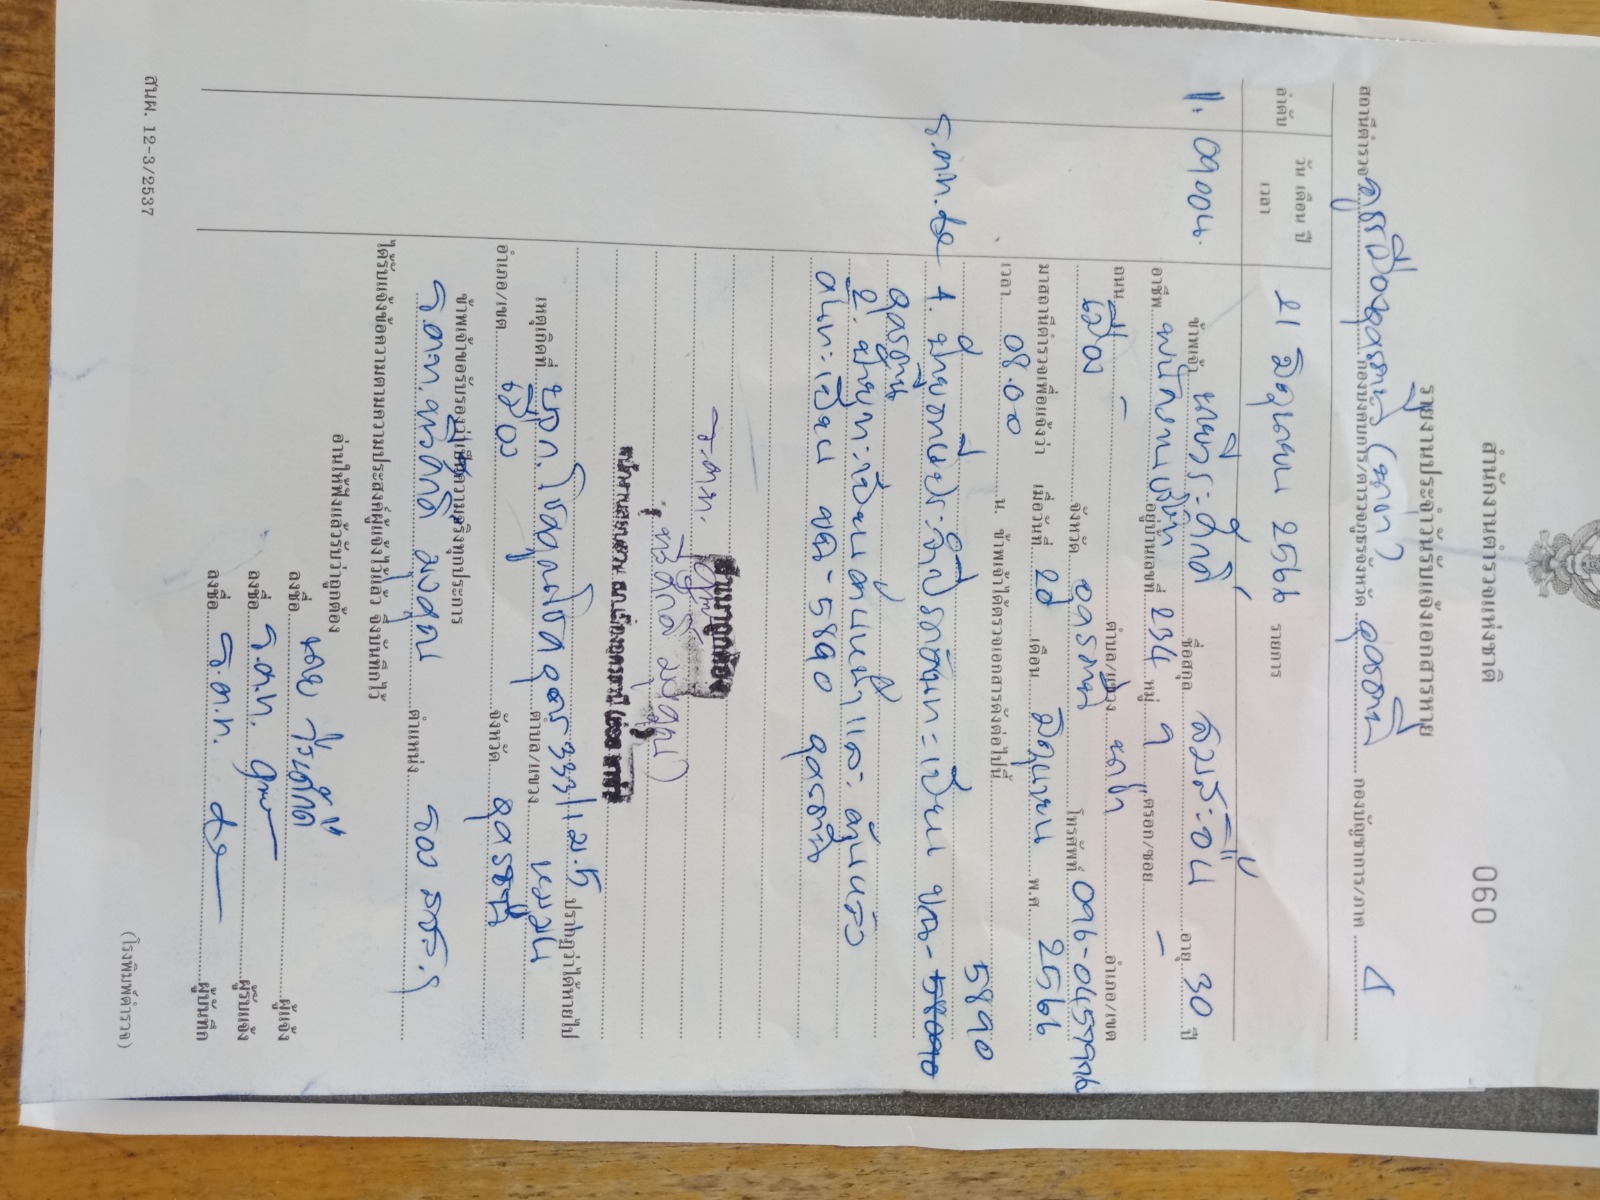 060
สำนักงานตำรวจแห่งชาติ
รายงานประจำวันรับแจ้งเอกสารหาย
สถานีตำรวจ กองบังคับการ/ตำรวจภูธรจังหวัด อุดรธานี กองบัญชาการ/ภาค 4
ลำดับ วัน เดือน ปี เวลา 21 มิถุนายน 2566 รายการ
1. ข้าพเจ้า นายวีระศักดิ์ ชื่อสกุล อายุ 30 ปี
อาชีพ พนักงานบริษัท อยู่บ้านเลขที่ 234 หมู่ 9 ตรอก/ซอย -
ถนน - ตำบล/แขวง นาข่า อำเภอ/เขต
เมือง จังหวัด อุดรธานี โทรศัพท์
มาสถานีตำรวจเพื่อแจ้งว่า เมื่อวันที่ 20 เดือน มิถุนายน พ.ศ. 2566
เวลา 08.00 น. ข้าพเจ้าได้ตรวจเอกสารดังต่อไปนี้
5890
ร.ต.ท. 1. ป้ายภาษีประจำปีรถทะเบียน ขน-
อุดรธานี
2. ป้ายทะเบียนด้านหน้าและด้านหลัง
ทะเบียน ขน-5890 อุดรธานี
สำเนาถูกต้อง
ร.ต.ท.
เหตุเกิดที่ บจก. โชคอุดร 333/1 ม.5 ปรากฏว่าได้หายไป
ตำบล/แขวง หมูม่น
อำเภอ/เขต เมือง จังหวัด อุดรธานี
ข้าพเจ้าขอรับรองว่าเป็นความจริงทุกประการ
ร.ต.ท. ตำแหน่ง รอง สว.
ได้รับแจ้งข้อความตามความประสงค์ผู้แจ้งไว้แล้ว จึงบันทึกไว้
อ่านให้ฟังแล้วรับว่าถูกต้อง
ลงชื่อ นาย วีระศักดิ์ ผู้แจ้ง
ลงชื่อ ร.ต.ท. ผู้รับแจ้ง
ลงชื่อ ร.ต.ท. ผู้บันทึก
สนผ. 12-3/2537
(โรงพิมพ์ตำรวจ)